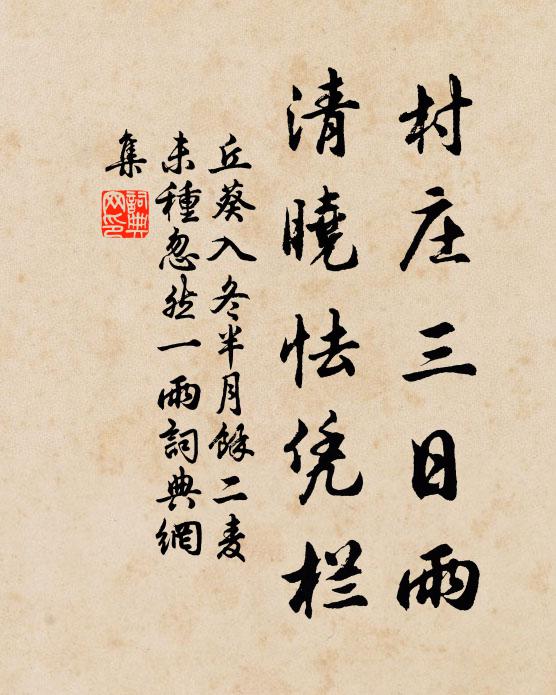 村庄三日雨
清曉怯凭栏
丘葵入冬半月餘二麦
未種忽然一雨詞典網
集
詞典
网印